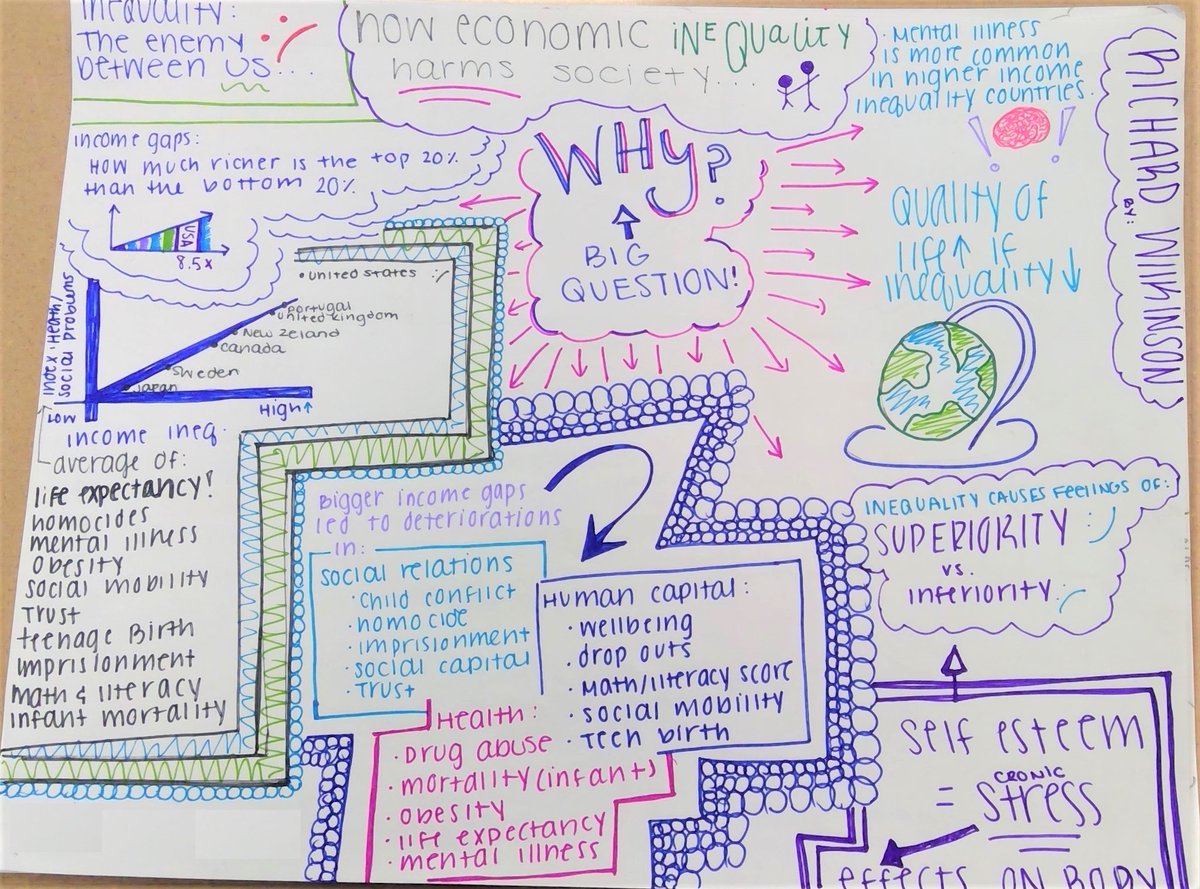 inequality:
The enemy
between us....
How economic iNEQUality
harms society...
· Mental illness
is more common
in higher income
inequality countries.
RICHARD WILKINSON
BY:
income gaps:
How much richer is the top 20%
than the bottom 20%
USA
8.5x
WHY?
BIG
QUESTION!
QUALITY OF
LIFE↑ IF
inequality↓
Index: Health/
social problems
· United States :/
Portugal
United Kingdom
New Zeland
Canada
Sweden
Japan
Low
High↑
income ineq.
average of:
life expectancy!
homocides
mental illness
obesity
social mobility
Trust
teenage Birth
imprisionment
math & literacy
infant mortality
Bigger income gaps
led to deteriorations
in:
social relations
· Child conflict
· homocide
· imprisionment
· social capital
· Trust
Human capital:
· wellbeing
· drop outs
· Math/literacy score
· social mobility
· Teen birth
Health:
· Drug abuse
· mortality (infant)
· obesity
· life expectancy
· mental illness
INEQUALITY CAUSES FEELINGS OF:
SUPERIORITY :)
vs.
inferiority :(
self esteem
CRONIC
= stress
effects ON BODY